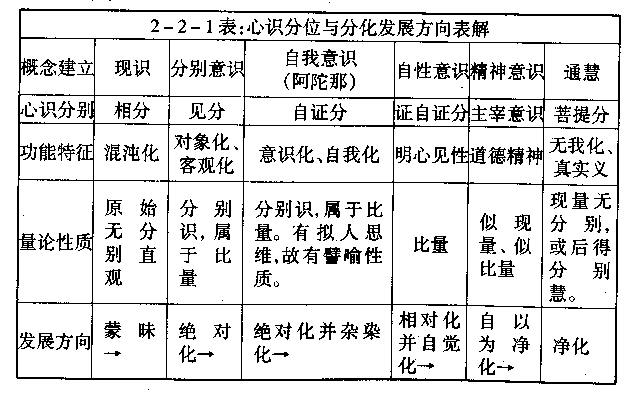 2-2-1表:心识分位与分化发展方向表解
概念建立 现识 分别意识 自我意识(阿陀那) 自性意识 精神意识 通慧
心识分别 相分 见分 自证分 证自证分 主宰意识 菩提分
功能特征 混沌化 对象化、客观化 意识化、自我化 明心见性 道德精神 无我化、真实义
量论性质 原始无分别直观 分别识,属于比量 分别识,属于比量。有拟人思维,故有譬喻性质。 比量 似现量、似比量 现量无分别,或后得分别慧。
发展方向 蒙昧→ 绝对化→ 绝对化并杂染化→ 相对化并自觉化→ 自以为净化→ 净化